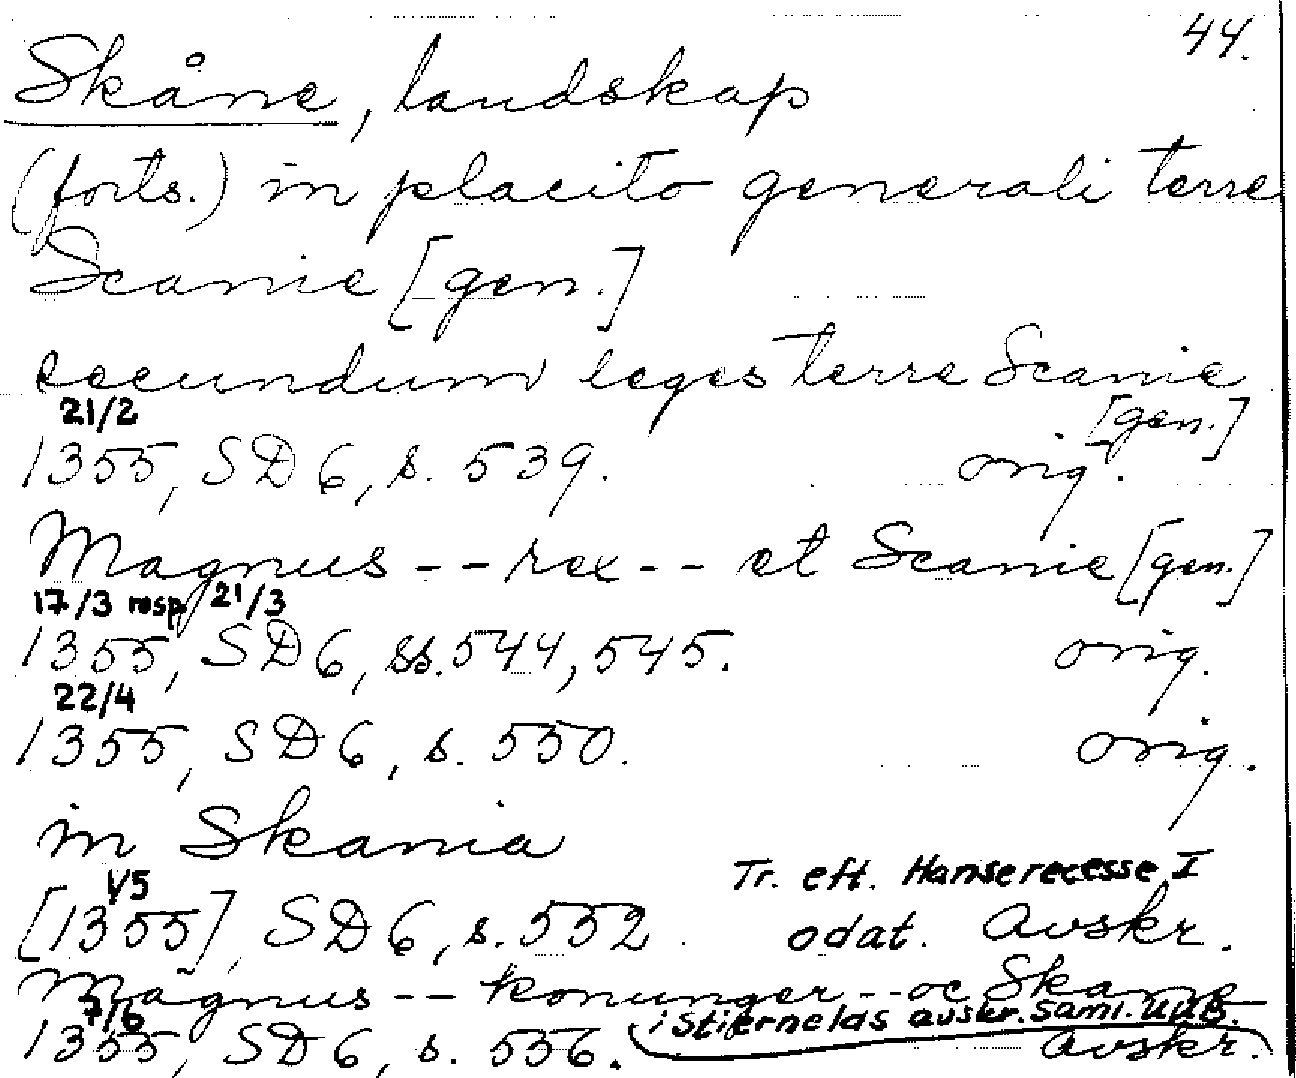 44.
Skåne, landskap
(forts.) in placito generali terre
Scanie [gen.]
secundum leges terre Scanie
[gen.]
21/2
1355, SD 6, s. 539. orig.
Magnus -- rex -- et Scanie [gen.]
17/3 resp. 21/3
1355, SD 6, ss. 544, 545. orig.
22/4
1355, SD 6, s. 550. orig.
in Skania
1/5 Tr. eft. Hanserecesse I
[1355], SD 6, s. 552. odat. Avskr.
Magnus -- konunger -- oc Skane
7/6 i Stiernelds avskr. saml. UUB.
1355, SD 6, s. 556. Avskr.